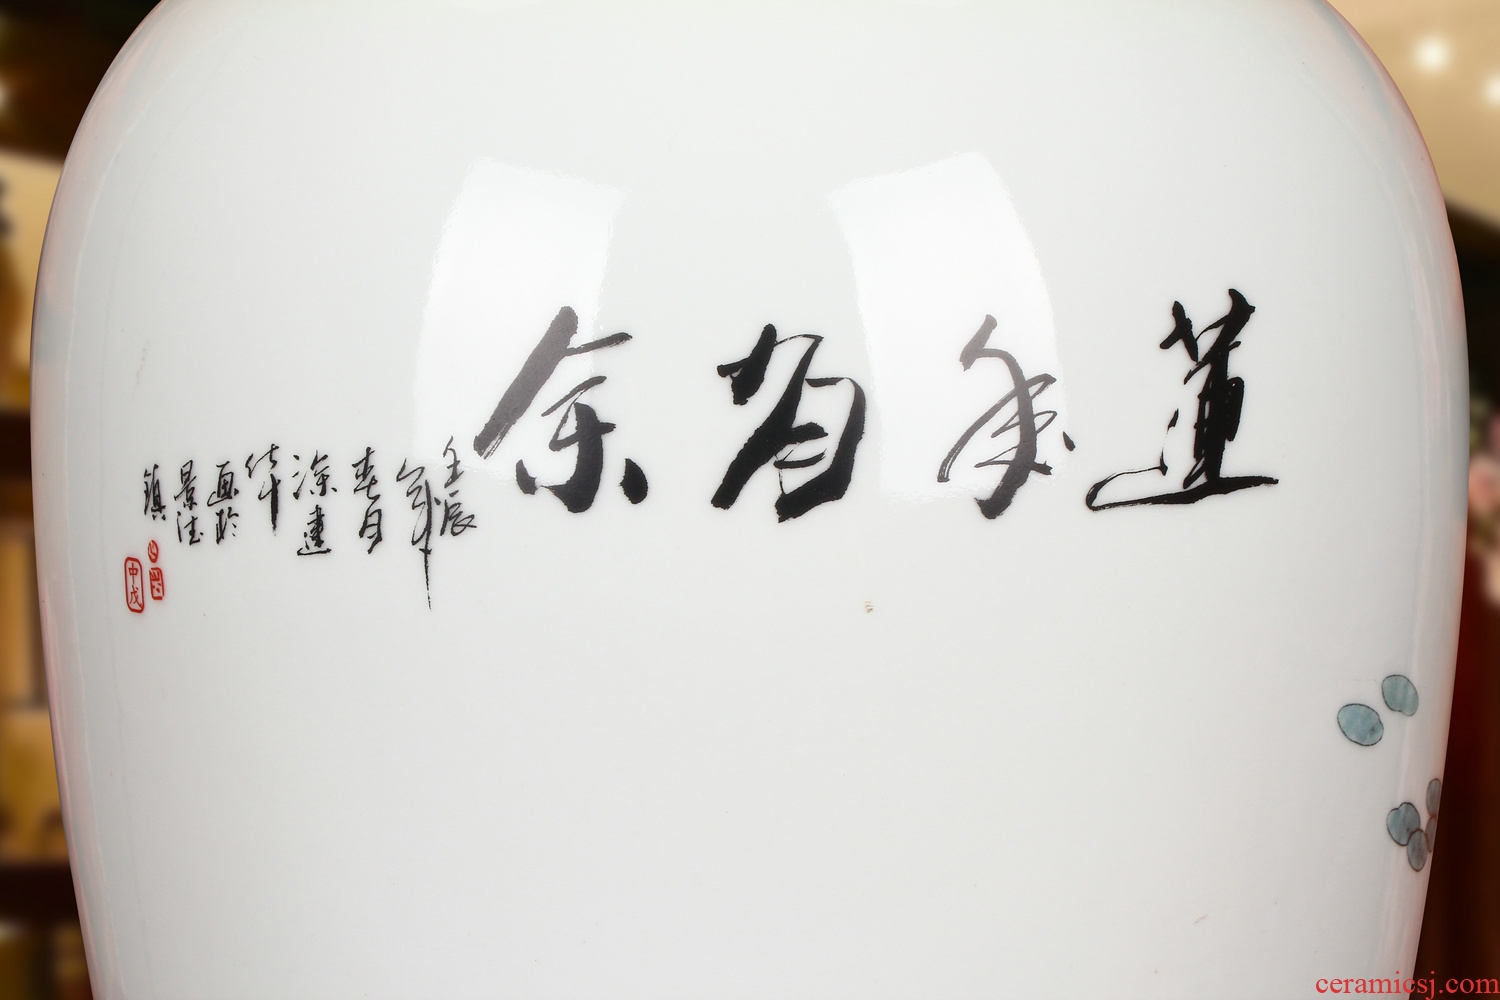 蓮年有余
壬辰
年
春月
涂建
华
画於
景德
鎮
中戊
ceramicsj.com